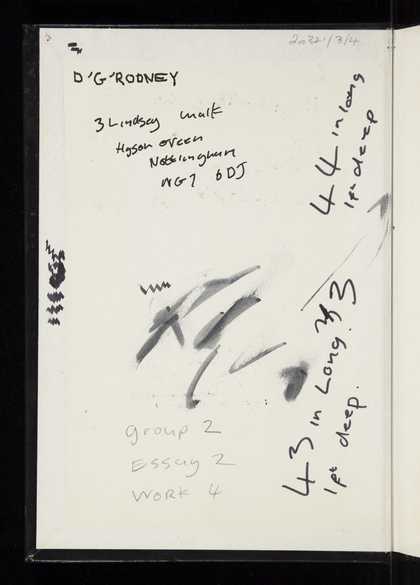 D'G'RODNEY
3 Lindsay Walk
Hyson Green
Nottingham
NG7 6DJ
44 in long
1ft deep
43 in Long. 3
1ft deep.
Group 2
Essay 2
Work 4